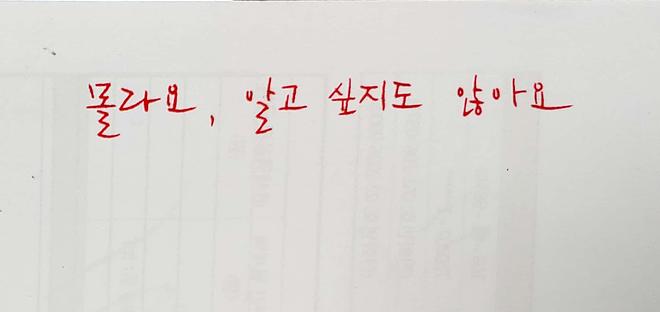 몰라요, 알고 싶지도 않아요